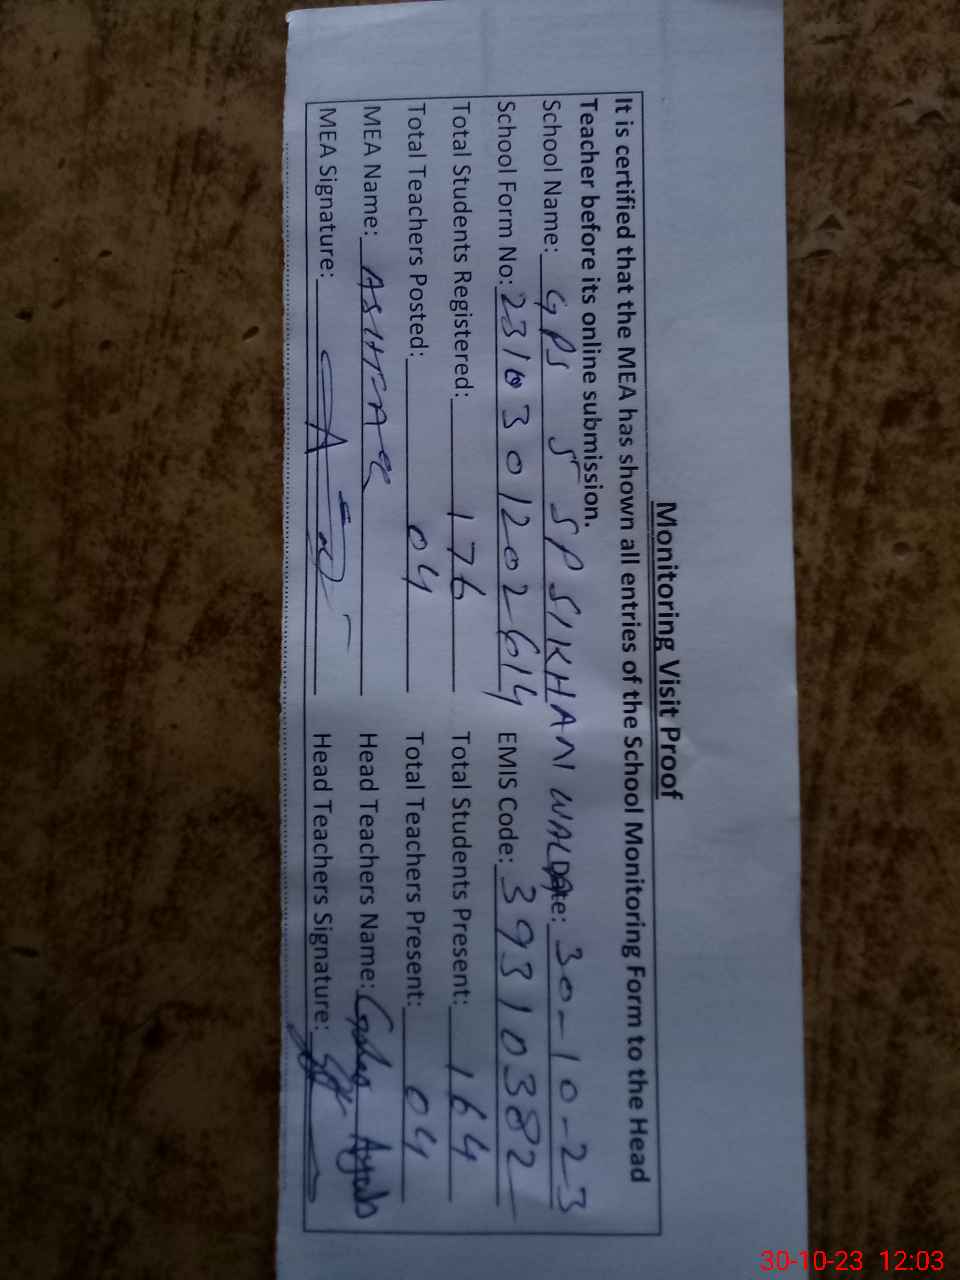 Monitoring Visit Proof
It is certified that the MEA has shown all entries of the School Monitoring Form to the Head
Teacher before its online submission.
School Name: GPS 5 SP SIKHANI WALA Date: 30-10-23
School Form No: 2310301202614 EMIS Code: 39310382
Total Students Registered: 176 Total Students Present: 164
Total Teachers Posted: 04 Total Teachers Present: 04
MEA Name: ASHFAQ Head Teachers Name:
MEA Signature: Head Teachers Signature:
30-10-23 12:03